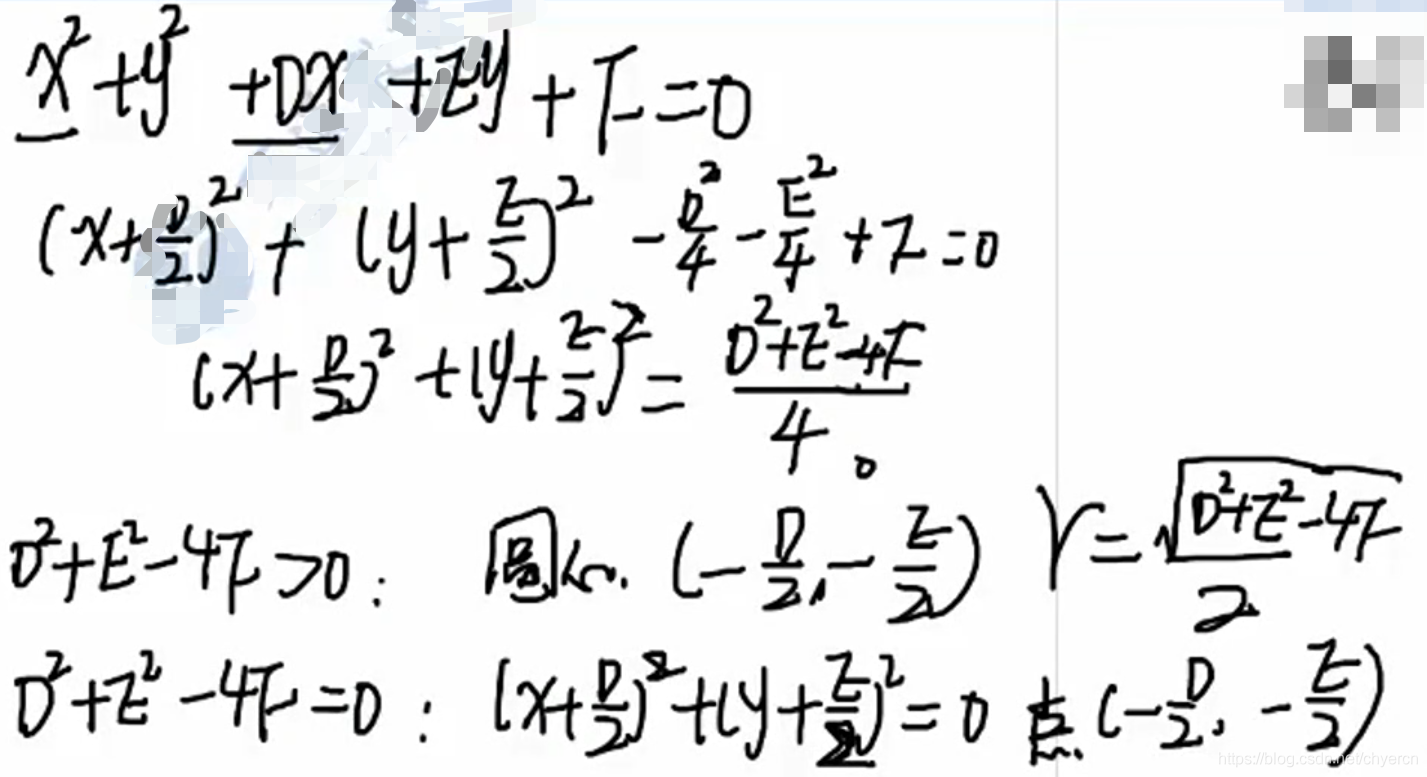 x²+y²+Dx+Ey+F=0
(x+D/2)²+(y+E/2)²-D²/4-E²/4+F=0
(x+D/2)²+(y+E/2)²=(D²+E²-4F)/4。
D²+E²-4F>0: 圆心(-D/2,-E/2) r=√(D²+E²-4F)/2
D²+E²-4F=0: (x+D/2)²+(y+E/2)²=0 点(-D/2,-E/2)
https://blog.csdn.net/chyercn